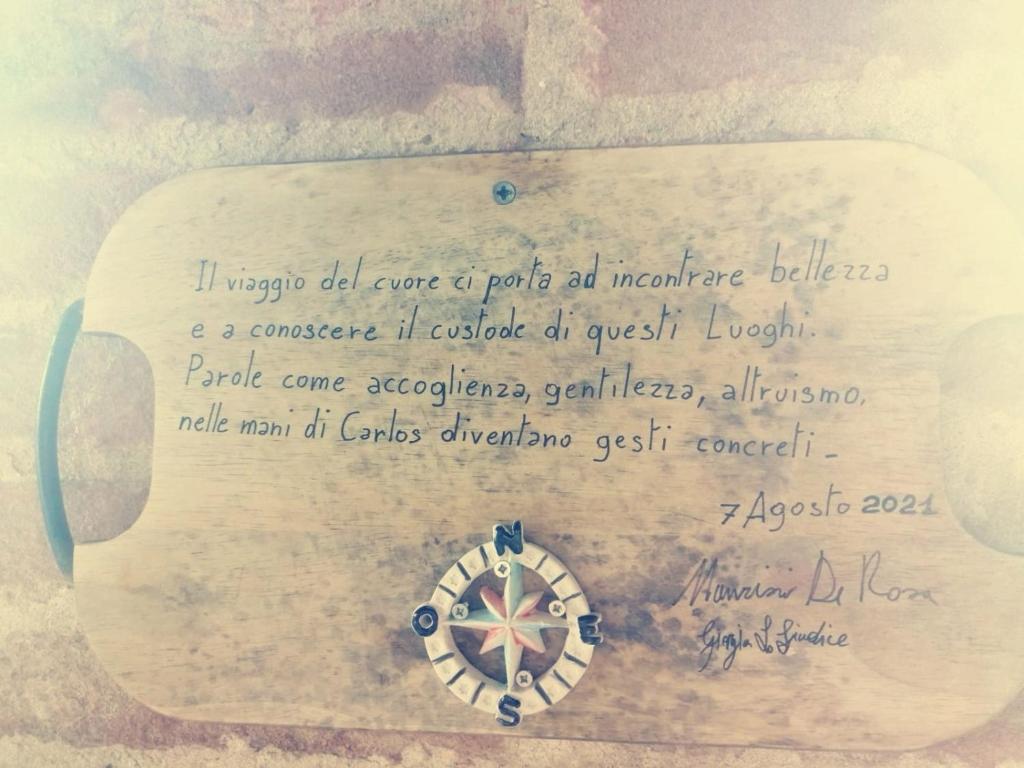 Il viaggio del cuore ci porta ad incontrare bellezza
e a conoscere il custode di questi Luoghi.
Parole come accoglienza, gentilezza, altruismo,
nelle mani di Carlos diventano gesti concreti _
7 Agosto 2021
Maurizio De Rosa
Giorgia Lo Giudice
N
O E
S